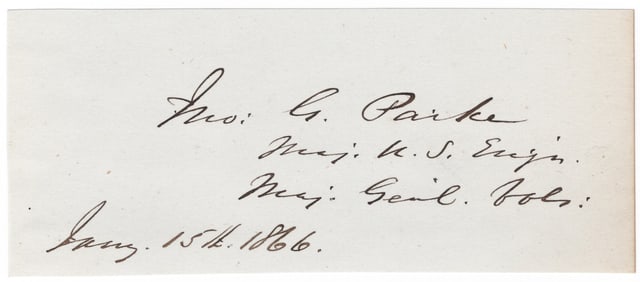 Jno: G. Parke
Maj. U. S. Engn.
Maj. Genl. Vols:
Jany. 15th. 1866.